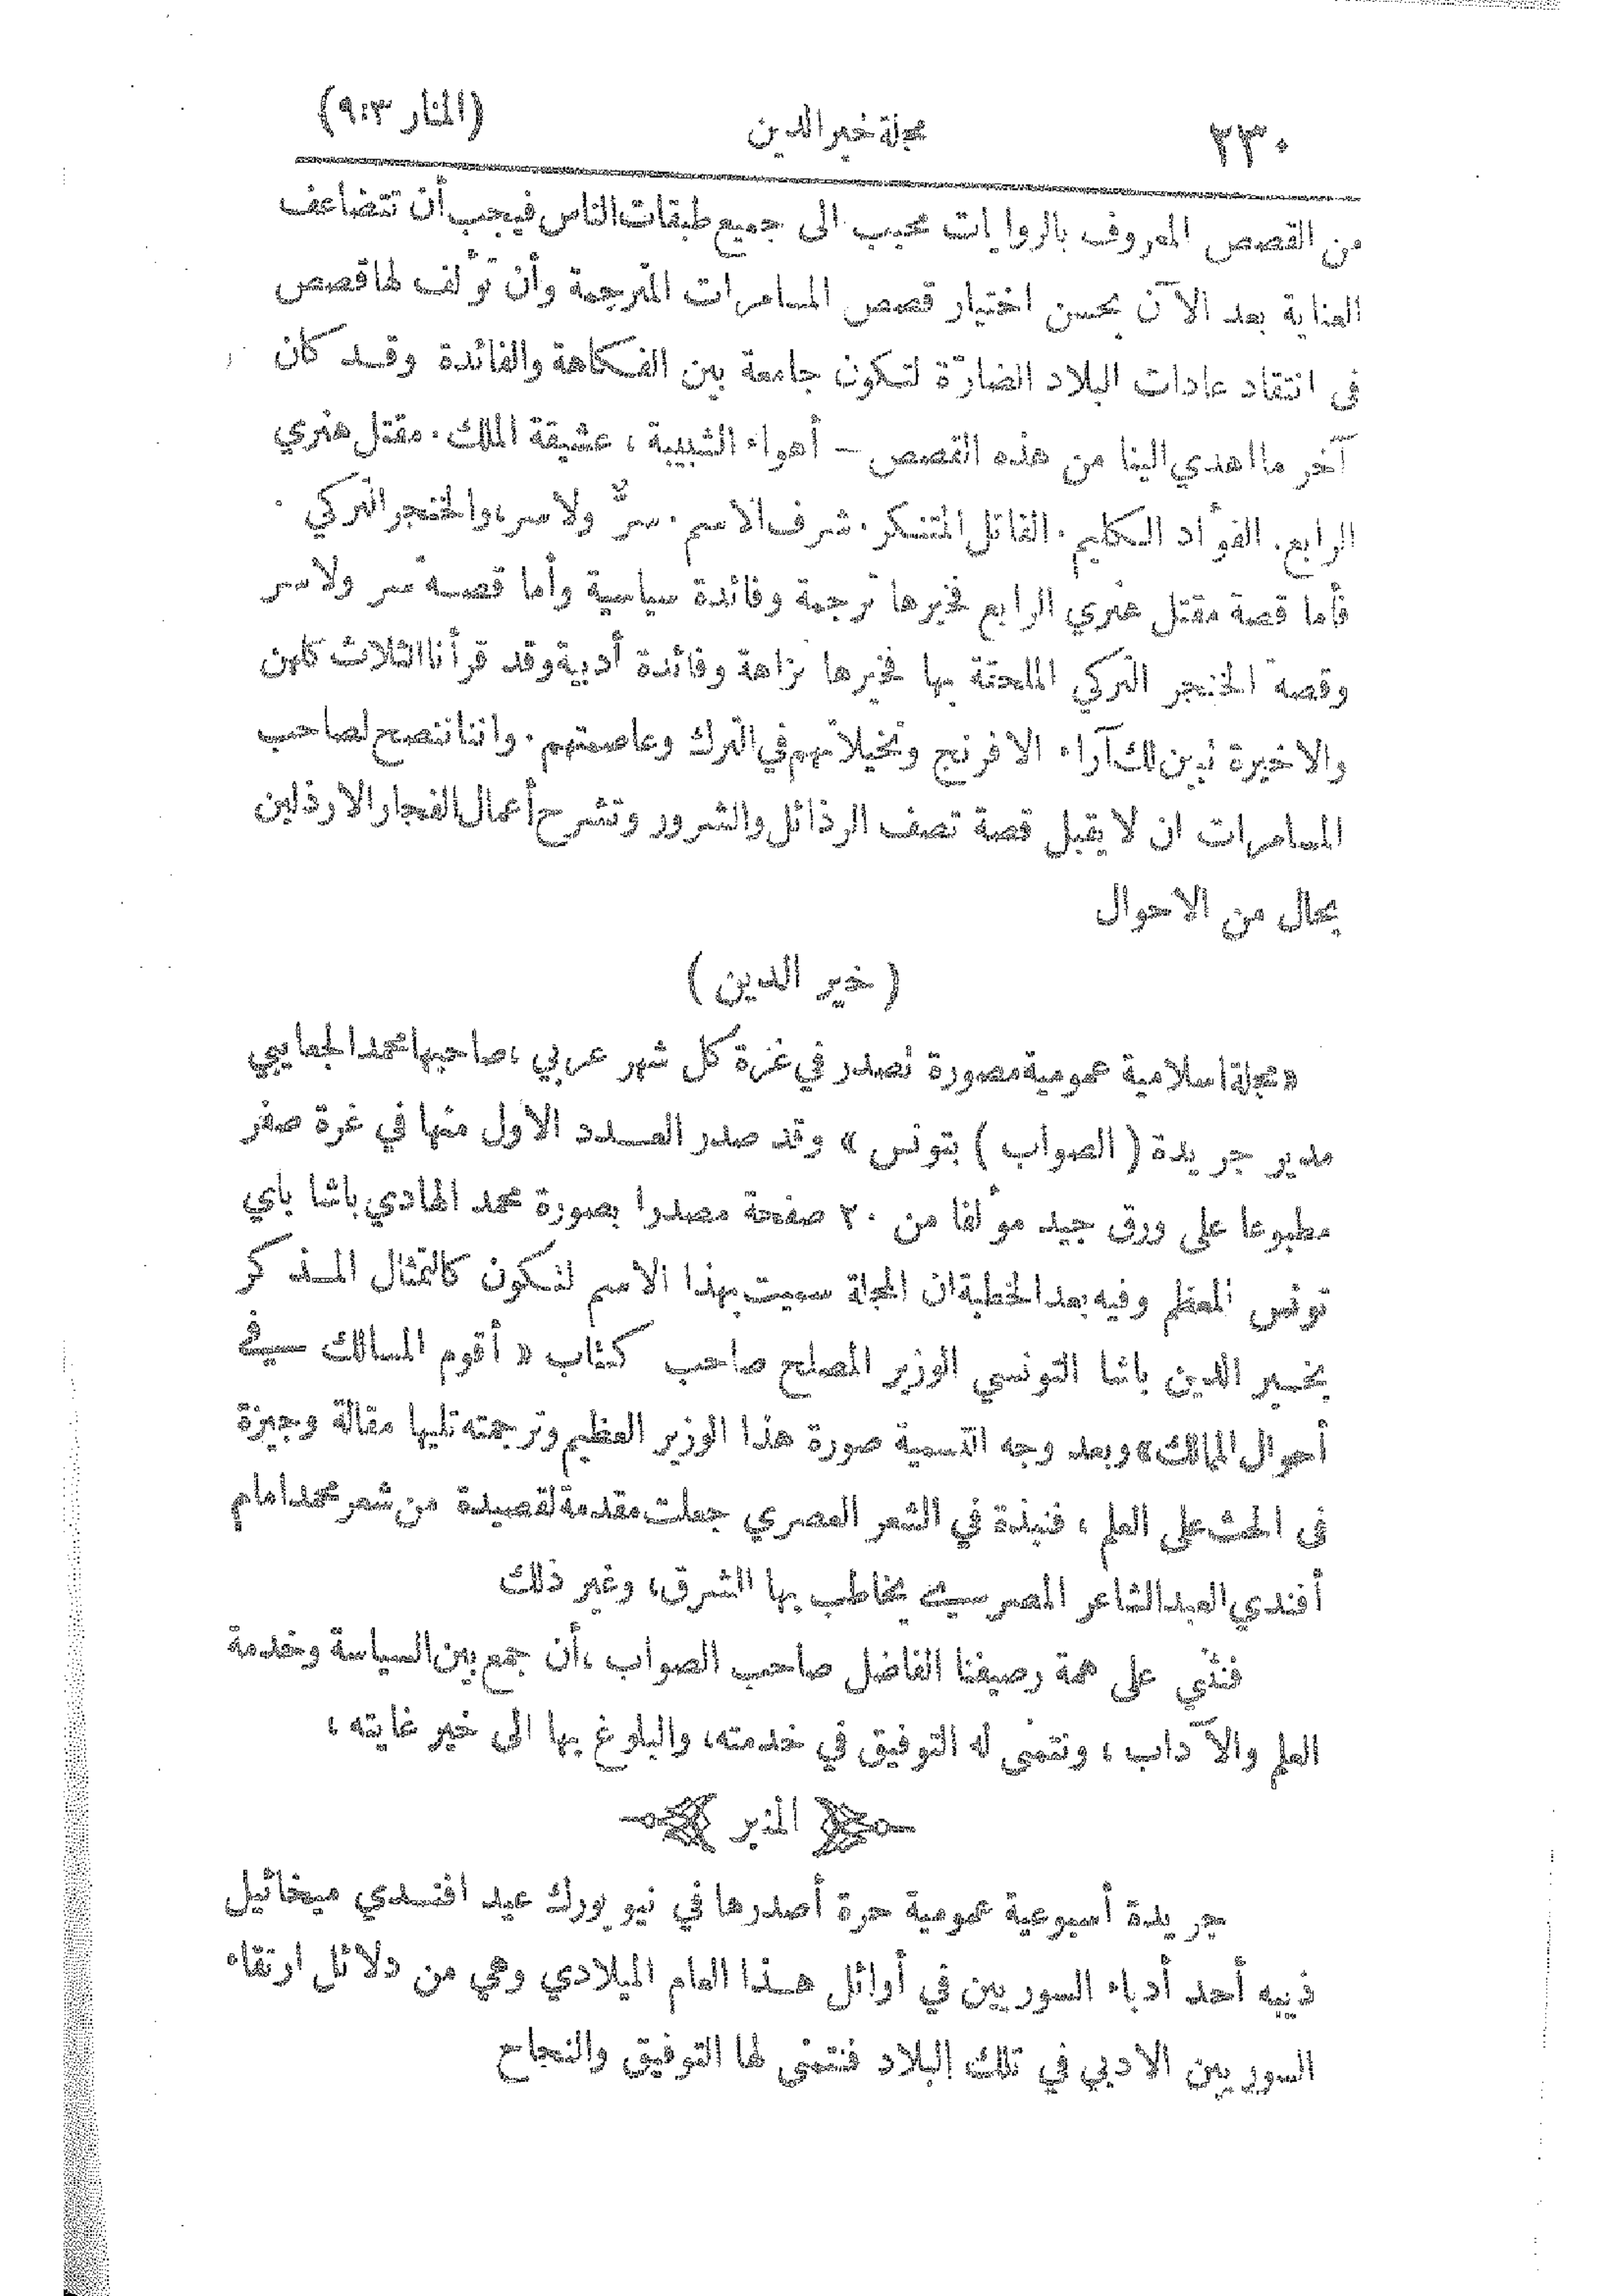 ٢٣٠ مجلة خير الدين (المنار ٩:٣)
من القصص المعروف بالروايات محبب الى جميع طبقات الناس فيجب أن تتضاعف
العناية بعد الآن بحسن اختيار قصص المسامرات المترجمة وأن تؤلف لها قصص
في انتقاد عادات البلاد الضارّة لتكون جامعة بين الفكاهة والفائدة وقد كان
آخر ما اهدي الينا من هذه القصص – أهواء الشبيبة ، عشيقة الملك . مقتل هنري
الرابع . الفؤاد الكليم . القاتل المتنكر . شرف الاسم . سرٌّ ولا سر، والخنجر التركي .
فأما قصة مقتل هنري الرابع فخيرها ترجمة وفائدة سياسية وأما قصة سر ولا سر
وقصة الخنجر التركي الملحقة بها فخيرها نزاهة وفائدة أدبية وقد قرأنا الثلاث كلهن
والاخيرة تبين لك آراء الافرنج وتخيلاتهم في الترك وعاصمتهم . واننا ننصح لصاحب
المسامرات ان لا يقبل قصة تصف الرذائل والشرور وتشرح أعمال الفجار الارذلين
بحال من الاحوال
( خير الدين )
« مجلة اسلامية عمومية مصورة تصدر في غرة كل شهر عربي ، صاحبها محمد الجعايبي
مدير جريدة ( الصواب ) بتونس » وقد صدر العدد الأول منها في غرة صفر
مطبوعا على ورق جيد مؤلفا من ٢٠ صفحة مصدرا بصورة محمد الهادي باشا باي
تونس المعظم وفيه بعد الخطبة ان المجلة سميت بهذا الاسم لتكون كالتمثال المذكر
بخير الدين باشا التونسي الوزير المصلح صاحب كتاب « أقوم المسالك في
أحوال الممالك » وبعد وجه التسمية صورة هذا الوزير العظيم وترجمته تليها مقالة وجيزة
في الحث على العلم ، فنبذة في الشعر العصري جعلت مقدمة لقصيدة من شعر محمد امام
أفندي العبد الشاعر المصري يخاطب بها الشرق، وغير ذلك
فنثني على همة رصيفنا الفاضل صاحب الصواب ، أن جمع بين السياسة وخدمة
العلم والآداب ، ونتمنى له التوفيق في خدمته، والبلوغ بها الى خير غايته ،
المنبر
جريدة أسبوعية عمومية حرة أصدرها في نيويورك عيد افندي ميخائيل
نبيه أحد أدباء السوريين في أوائل هذا العام الميلادي وهي من دلائل ارتقاء
السوريين الادبي في تلك البلاد فنتمنى لها التوفيق والنجاح